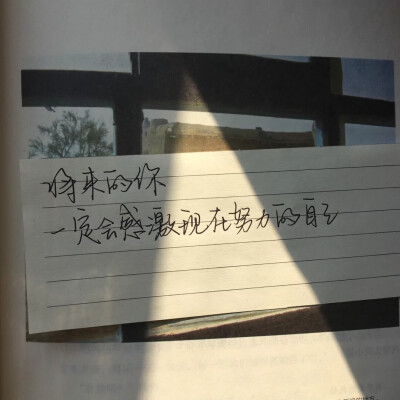 将来的你
一定会感激现在努力的自己